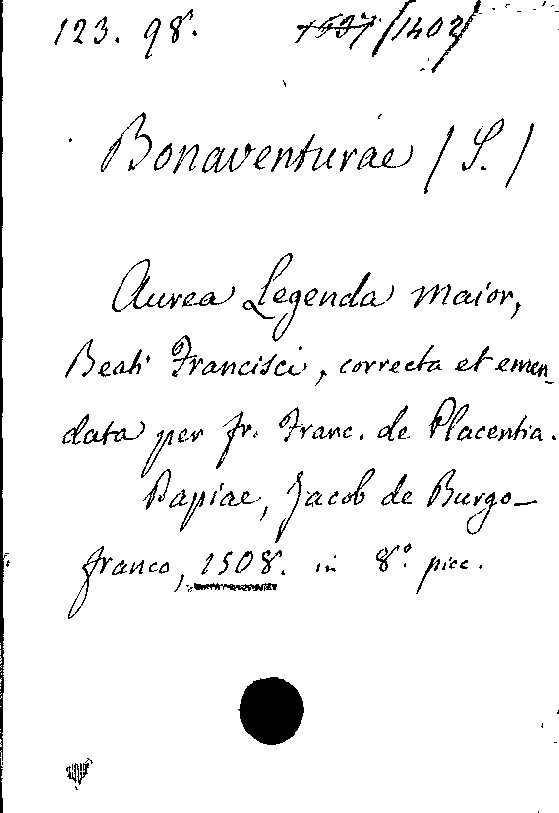 123. 98. 1537 (1402)
Bonaventurae (S.)
Aurea Legenda maior,
Beati Francisci, correcta et emen-
data per fr. Franc. de Placentia.
Papiae, Jacob de Burgo-
franco, 1508. in 8.° picc.